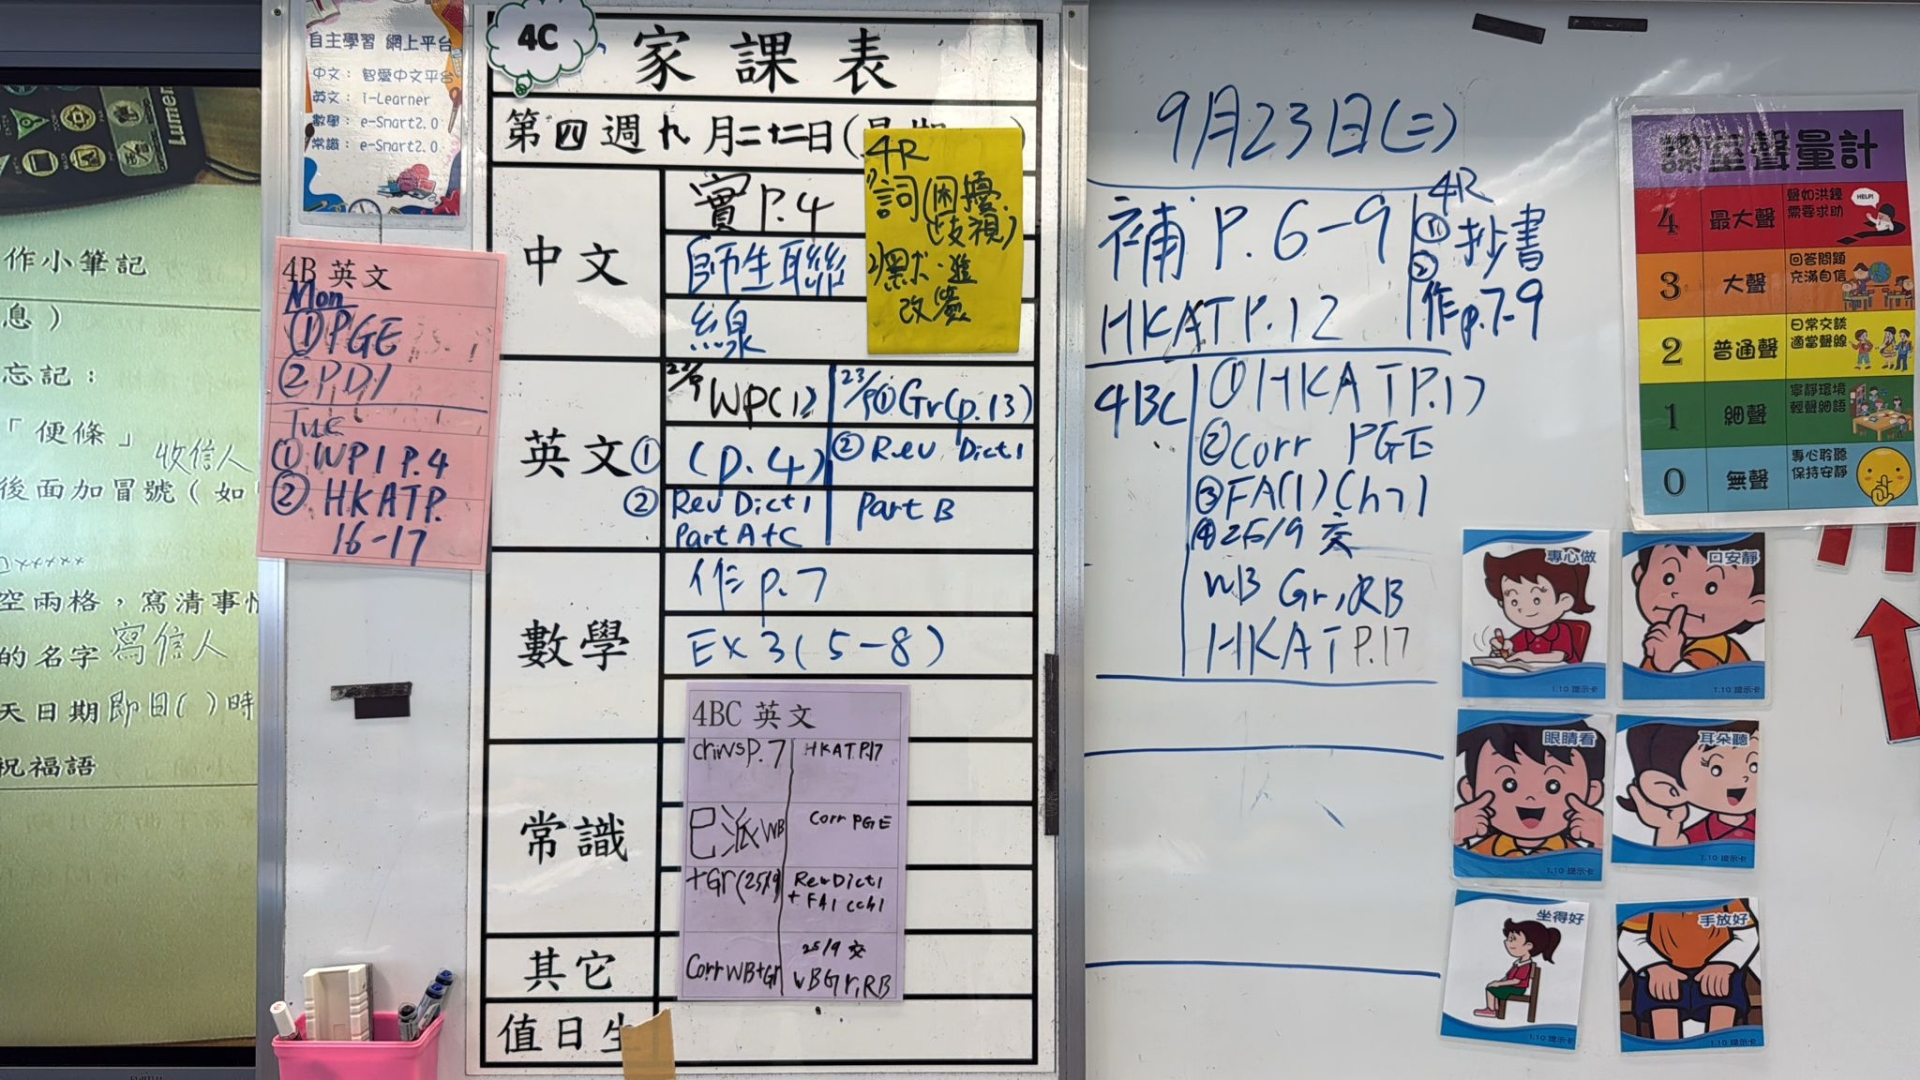 Lumen
作小筆記
息）
忘記：
「便條」
收信人
後面加冒號（如
①×××××
空兩格，寫清事
的名字 寫信人
天日期 即日( )時
祝福語
自主學習 網上平台
中文： 智愛中文平台
英文： i-Learner
數學： e-Smart2.0
常識： e-Smart2.0
4B 英文
Mon
① PGE
② PD1
Tue
① WP1 P.4
② HKAT P.
16-17
4C
家課表
第四週九月二十二日(
中文
實 P.4
師生聯
線
4R
1) 詞(困擾
歧視)
改
英文
①
②
22/9 WP(1)
(p.4)
Rev Dict 1
Part A+C
23/9 ① Gr(p.13)
② Rev. Dict 1
Part B
數學
作 p.7
Ex 3(5-8)
4BC 英文
HKAT P.17
Corr PGE
+Gr(25/9)
Rev Dict 1
25/9 交
Corr WB+Gr
WB Gr, RB
常識
其它
值日生
9月23日(二)
補 P. 6-9
HKAT P.12
4R
① 抄書
②
作 p.7-9
4BC
① HKAT P.17
② Corr PGE
③ FA(1) Ch 1
④ 25/9 交
WB Gr, RB
HKAT P.17
課室聲量計
4 最大聲 聲如洪鐘 需要求助
HELP!
3 大聲 回答問題 充滿自信
2 普通聲 日常交談 適當聲線
1 細聲 寧靜環境 輕聲細語
0 無聲 專心聆聽 保持安靜
專心做
1.10 提示卡
口安靜
1.10 提示卡
眼睛看
1.10 提示卡
耳朵聽
1.10 提示卡
坐得好
1.10 提示卡
手放好
1.10 提示卡